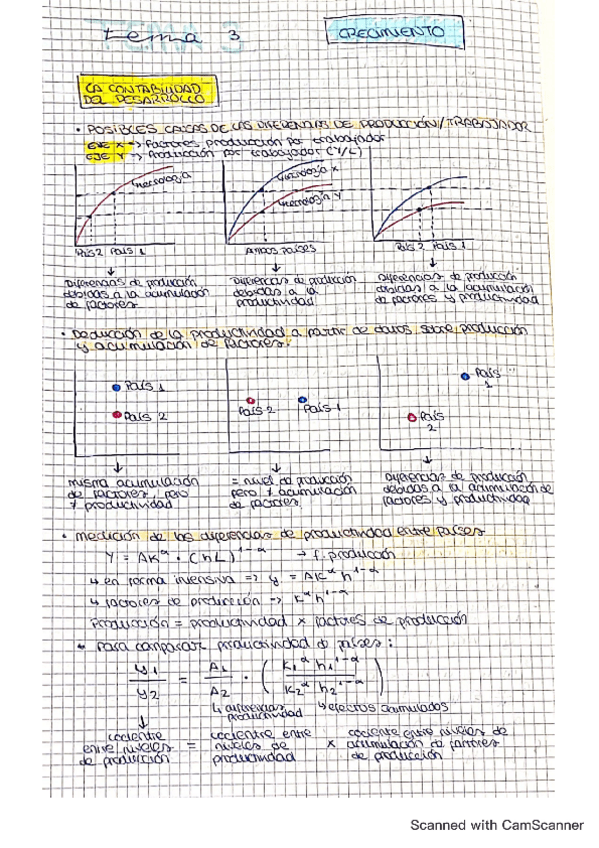 tema 3
CRECIMIENTO
LA CONTABILIDAD
DEL DESARROLLO
• POSIBLES CAUSAS DE LAS DIFERENCIAS DE PRODUCCIÓN/TRABAJADOR
EJE X → Factores producción por trabajador
EJE Y → Producción por trabajador (Y/L)
tecnología
tecnología X
tecnología Y
País 2 País 1
Ambos países
País 2 País 1
Diferencias de producción
debidas a la acumulación
de factores
Diferencias de producción
debidas a la
productividad
Diferencias de producción
debidas a la acumulación
de factores y productividad
• Deducción de la productividad a partir de datos sobre producción
y acumulación de factores:
País 1
País 2
País 2
País 1
País 1
País 2
misma acumulación
de factores, pero
≠ productividad
= nivel de producción
pero ≠ acumulación
de factores
Diferencias de producción
debidas a la acumulación de
factores y productividad
• Medición de las diferencias de productividad entre países
Y = AK^α · (hL)^1-α → f. producción
↳ en forma intensiva => y = Ak^α h^1-α
↳ factores de producción -> k^α h^1-α
Producción = productividad x factores de producción
• Para comparar productividad de países:
y1/y2 = A1/A2 · (k1^α h1^1-α / k2^α h2^1-α)
↳ diferencias productividad
↳ efectos acumulados
cociente entre niveles de producción = cociente entre niveles de productividad x cociente entre niveles de acumulación de factores de producción
Scanned with CamScanner